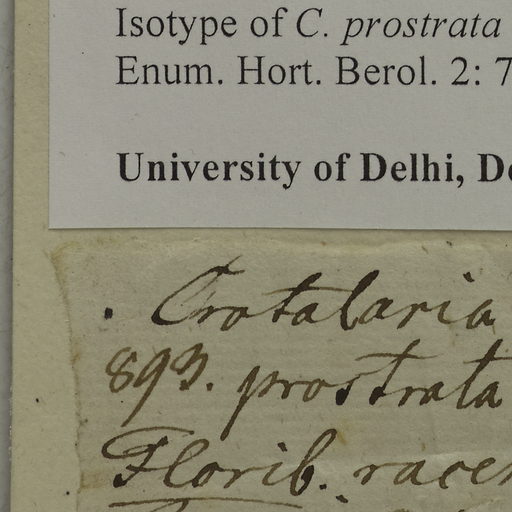 Isotype of C. prostrata
Enum. Hort. Berol. 2: 7
University of Delhi, De
Crotalaria
893. prostrata
Florib. racem